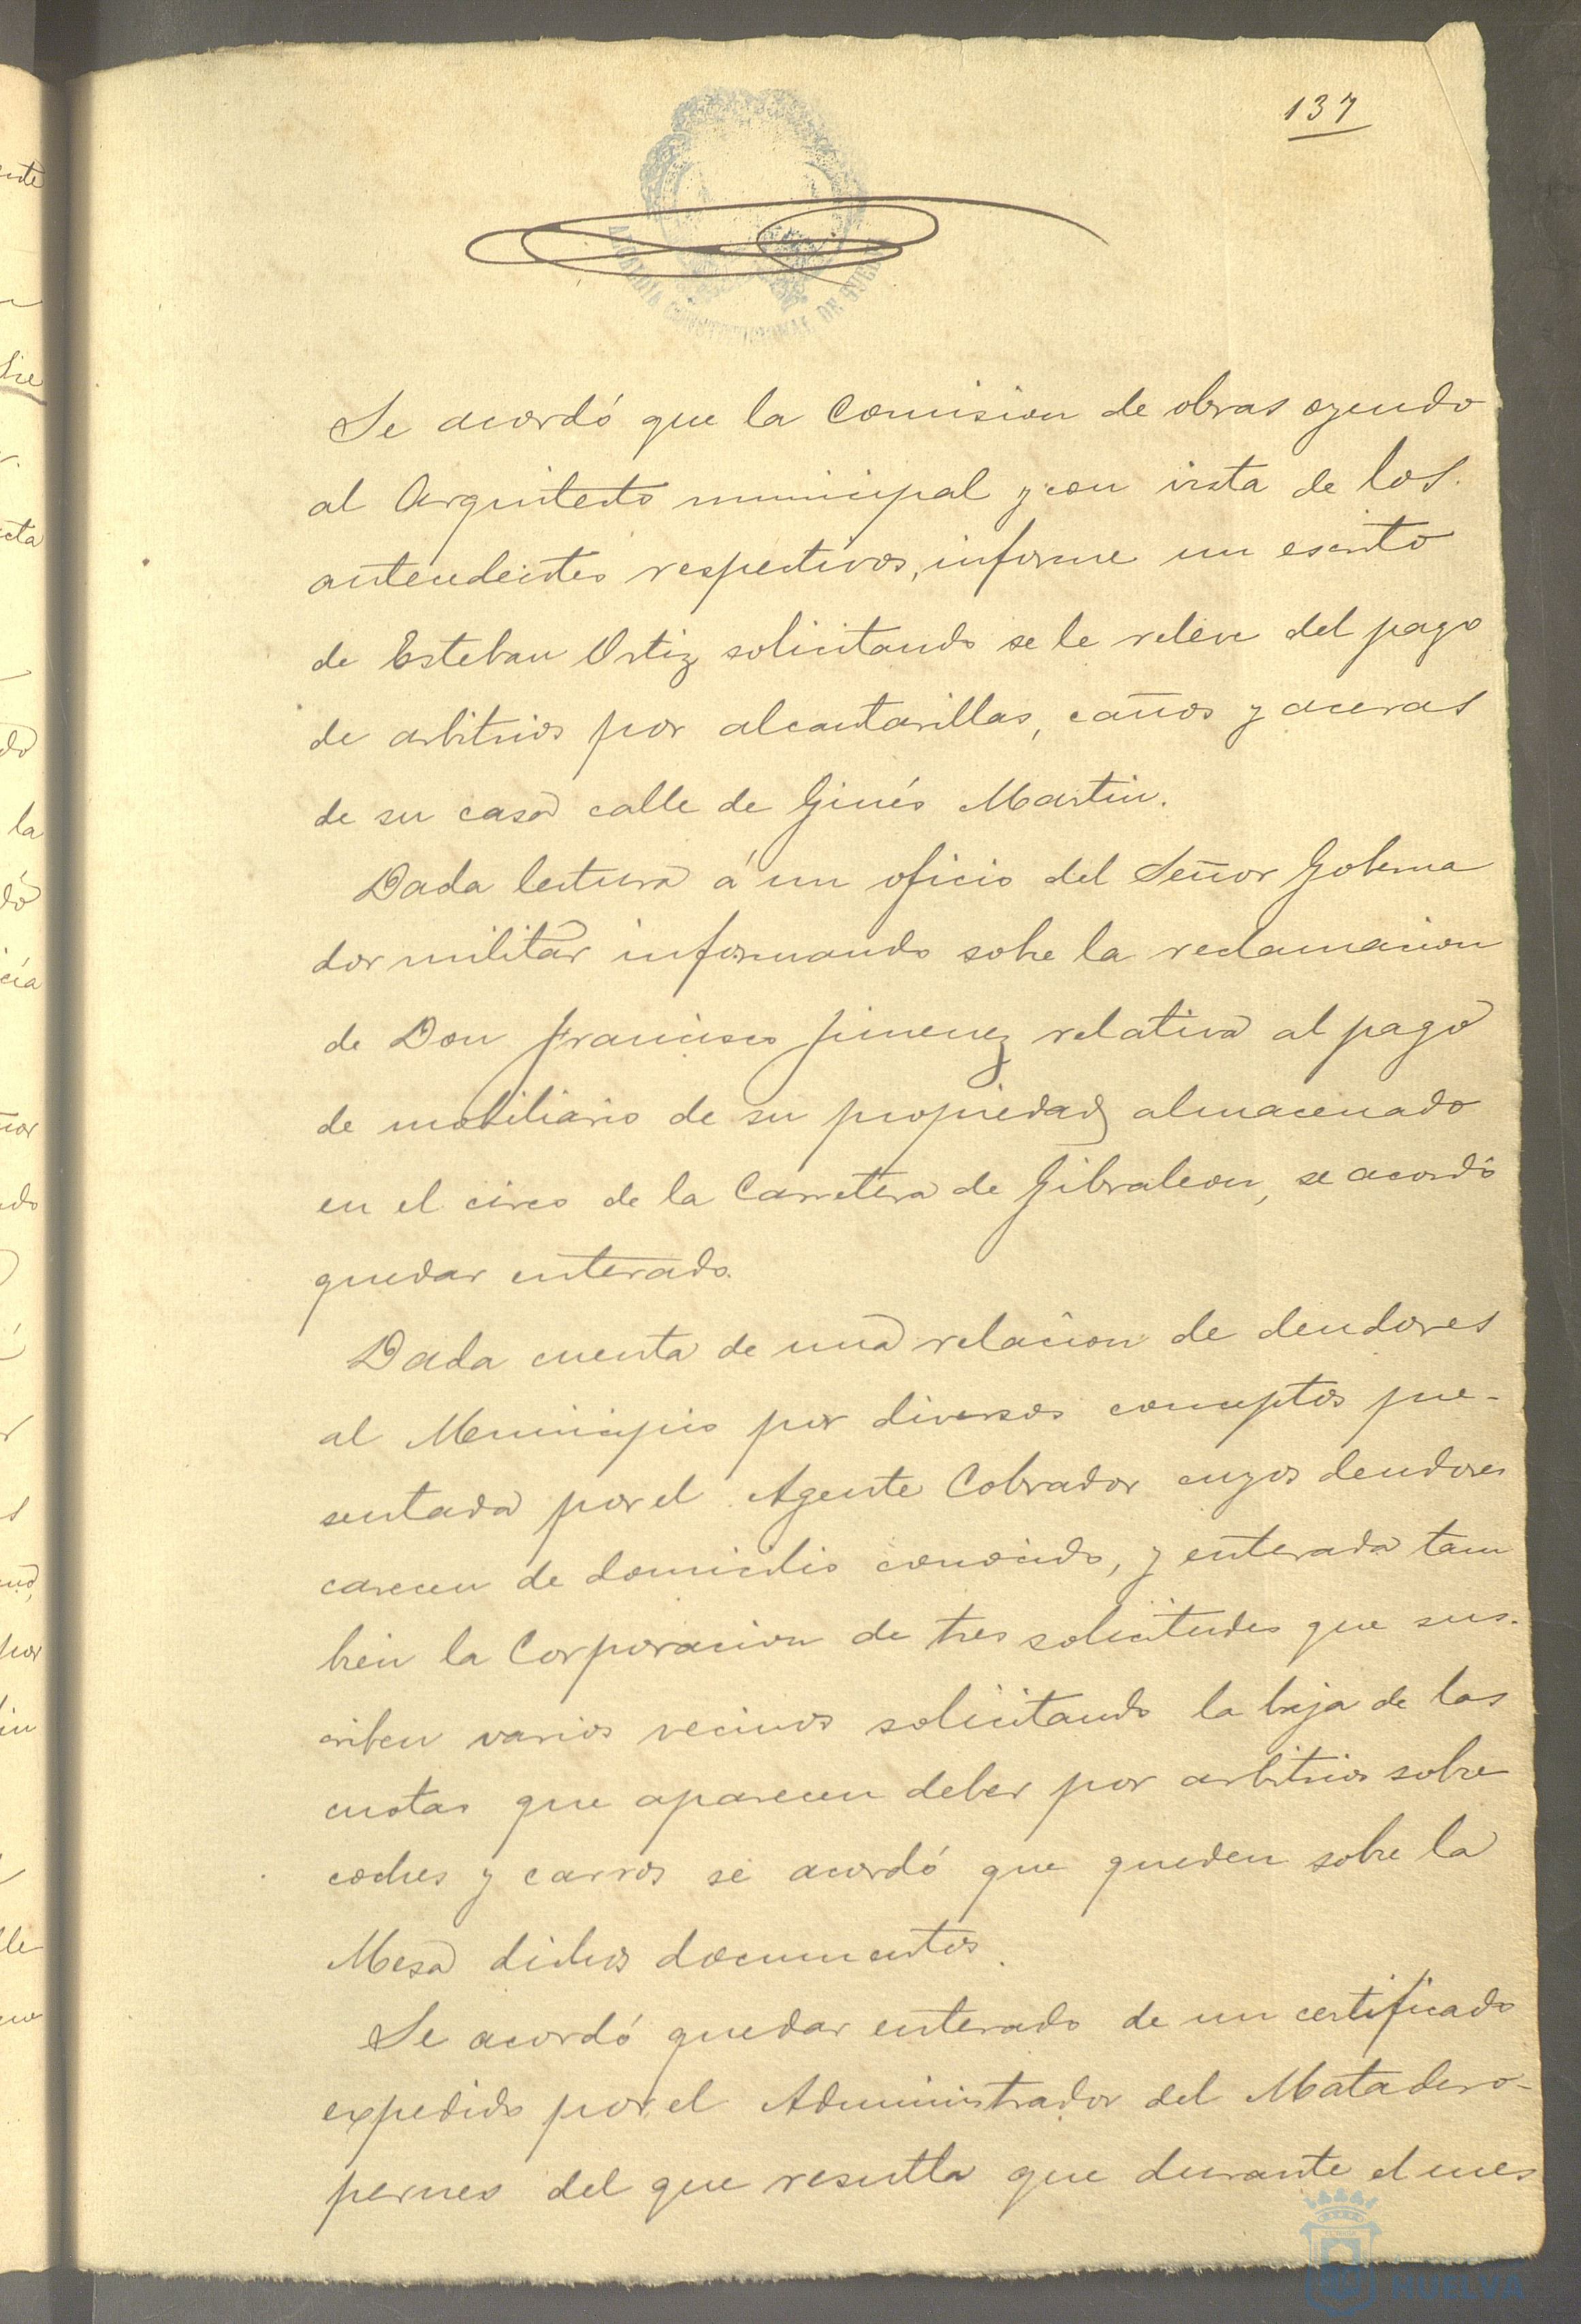 137
ALCALDIA CONSTITUCIONAL DE HUELVA
Se acordó que la Comision de obras oyendo
al Arquitecto municipal y con vista de los
antecedentes respectivos, informe un escrito
de Esteban Ortiz solicitando se le releve del pago
de arbitrios por alcantarillas, caños y aceras
de su casa calle de Ginés Martin.
Dada lectura á un oficio del Señor Goberna
dor militar informando sobre la reclamacion
de Don Francisco Jimenez relativa al pago
de mobiliario de su propiedad almacenado
en el circo de la Carretera de Gibraleon, se acordó
quedar enterado.
Dada cuenta de una relacion de deudores
al Municipio por diversos conceptos pre-
sentada por el Agente Cobrador cuyos deudores
carecen de domicilio conocido, y enterada tam
bien la Corporacion de tres solicitudes que sus-
criben varios vecinos solicitando la baja de las
cuotas que aparecen deber por arbitrios sobre
coches y carros se acordó que queden sobre la
Mesa dichos documentos.
Se acordó quedar enterado de un certificado
expedido por el Administrador del Matadero-
pernes del que resulta que durante el mes
HUELVA